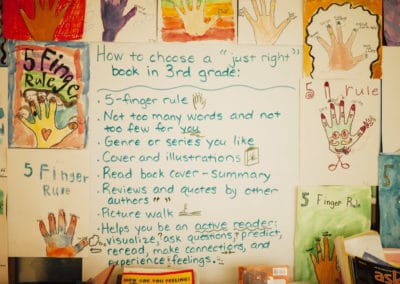 How to choose a "just right"
book in 3rd grade:
· 5-finger rule
· Not too many words and not
too few for you
· Genre or series you like
· Cover and illustrations
· Read back cover - summary
· Reviews and quotes by other
authors " "
· Picture walk
· Helps you be an active reader:
visualize, ask questions, predict,
reread, make connections, and
experience feelings.
5 Finger
Rule
5 Finger
Rule
5 rule
5 Finger Rule
HOW ARE YOU FEELING?